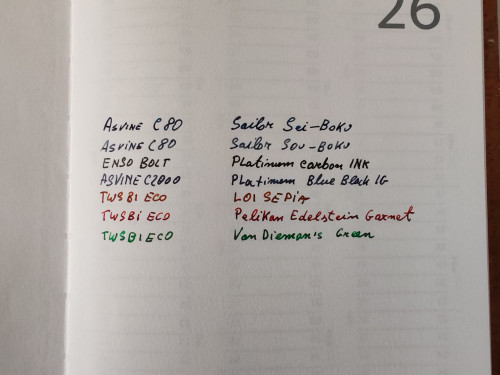 26
ASVINE C80 Sailor Sei-Boku
ASVINE C80 Sailor Sou-Boku
ENSO BOLT Platinum Carbon INK
ASVINE C2000 Platinum Blue Black IG
TWSBI ECO LOI SEPIA
TWSBI ECO Pelikan Edelstein Garnet
TWSBI ECO Van Dieman's Green